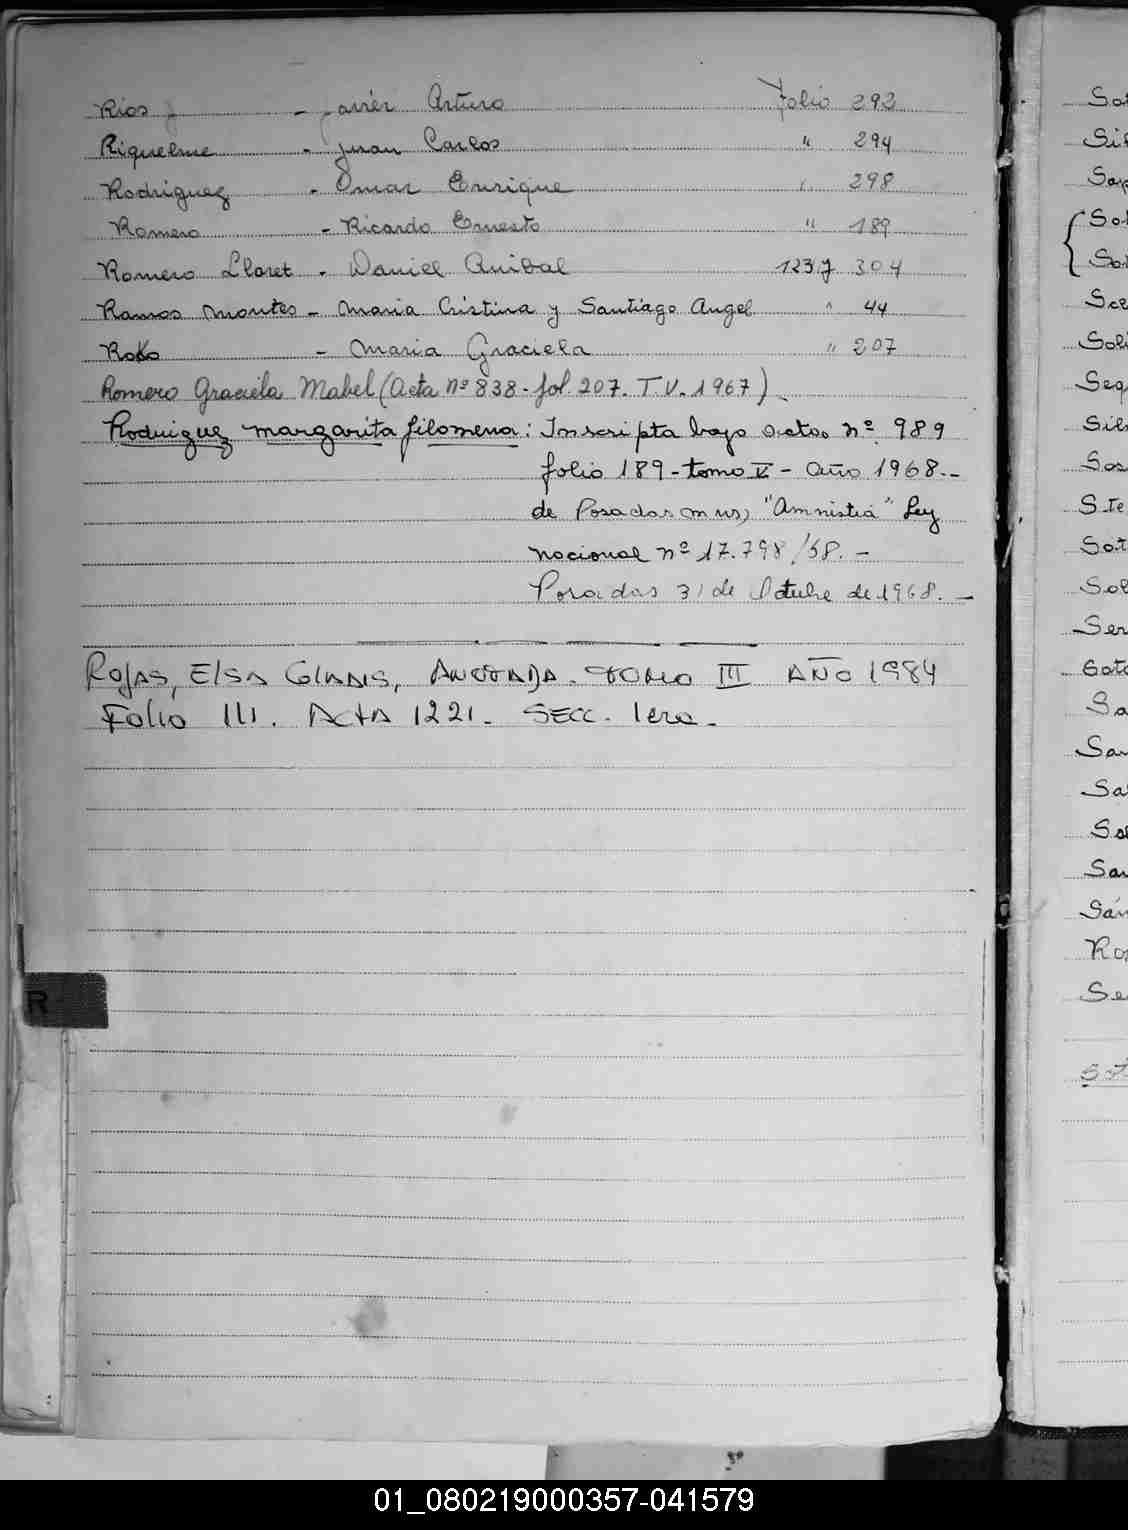 Rios - Javier Arturo Folio 293
Riquelme - Juan Carlos " 294
Rodriguez - Omar Enrique " 298
Romero - Ricardo Ernesto " 189
Romero Lloret - Daniel Anibal 1237 304
Ramos Montes - Maria Cristina y Santiago Angel " 44
- Maria Graciela " 207
Romero Graciela Mabel (Acta nº 838 - fol. 207. T.V. 1967)
Rodriguez Margarita Filomena: Inscripta bajo acta nº 989
folio 189 - tomo V - año 1968.-
de Posadas mns, "Amnistia" Ley
nacional nº 17.798/68. -
Posadas 31 de Octubre de 1968. -
ROJAS, ElSA GlADIS, ANOTADA. TOMO III AÑO 1984
Folio 111. ACTA 1221. SECC. 1era.
R
Sil
{ Sot
Sot
Soli
Seq
Silv
Sos
Ste
Sot
Sol
Ser
Soto
Sa
San
Sal
San
Sán
Ro
Se
Sot
01_080219000357-041579